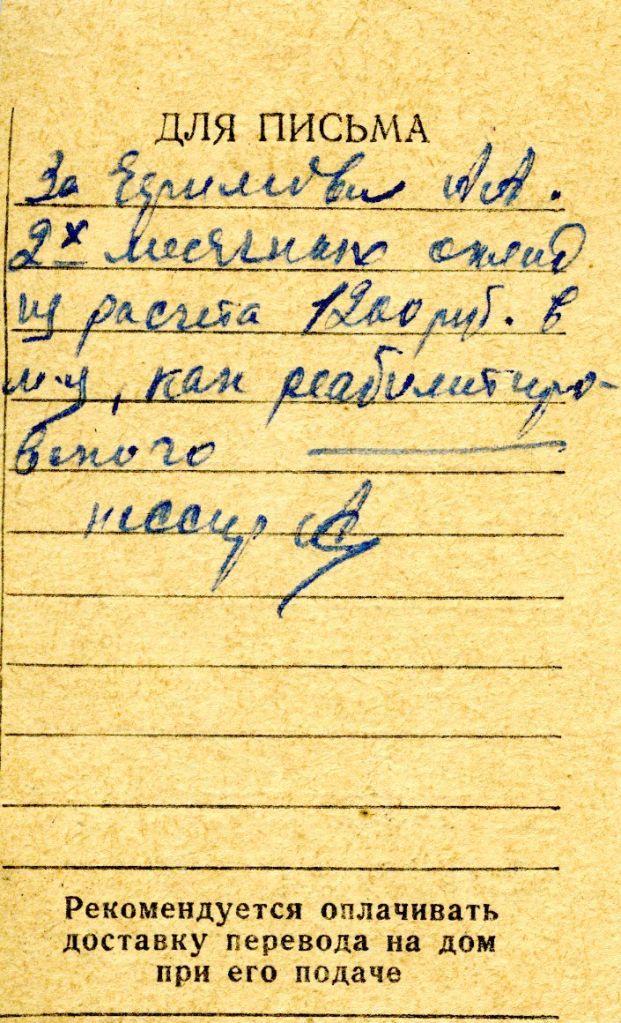 ДЛЯ ПИСЬМА
За А.А.
2х месячный оклад
из расчета 1200 руб. в
м-ц, как реабилитиро-
ванного
Рекомендуется оплачивать
доставку перевода на дом
при его подаче